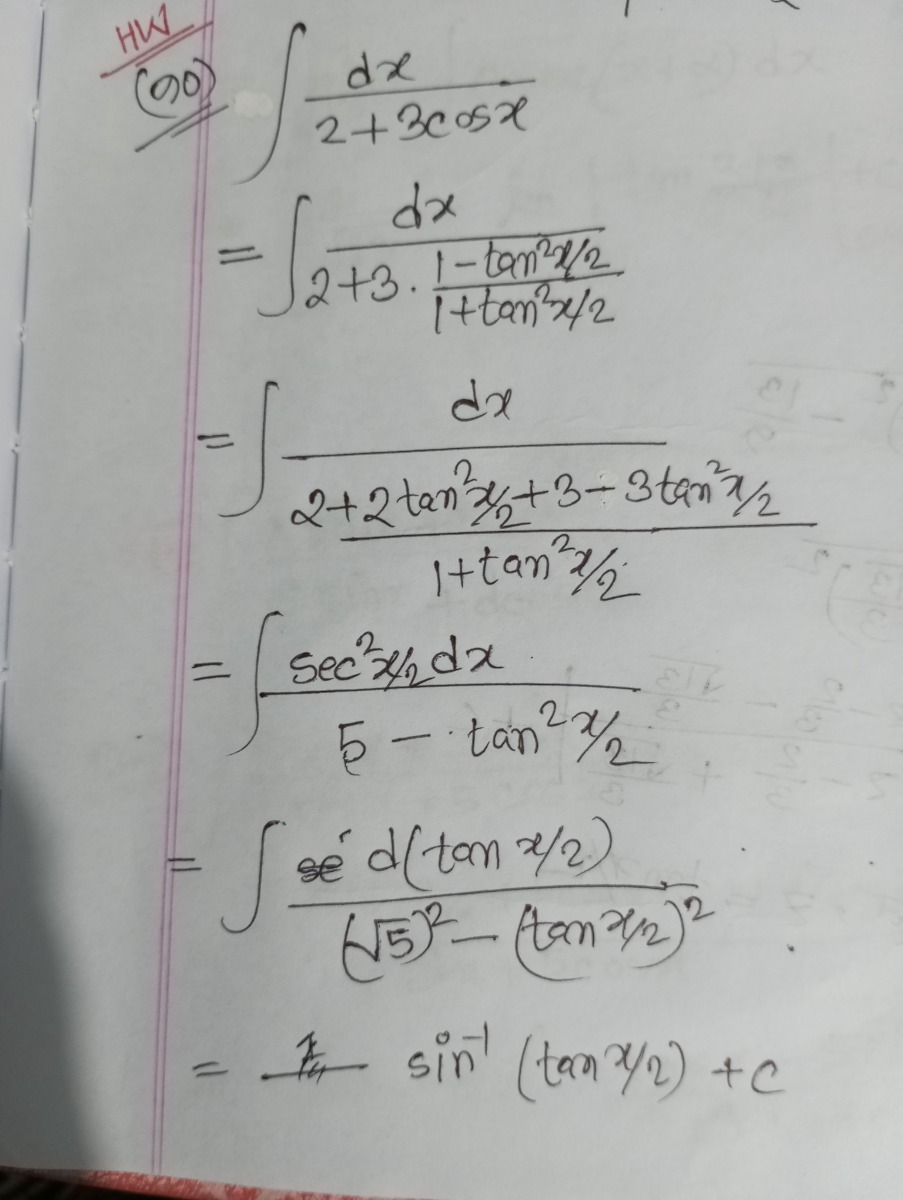 HW
∫ dx / (2+3cosx)
= ∫ dx / (2+3. (1-tan²x/2) / (1+tan²x/2))
= ∫ dx / ((2+2tan²x/2+3-3tan²x/2) / (1+tan²x/2))
= ∫ sec²x/2 dx / (5 - tan²x/2)
= ∫ d(tan x/2) / ((√5)² - (tan x/2)²)
= sin⁻¹ (tan x/2) + c